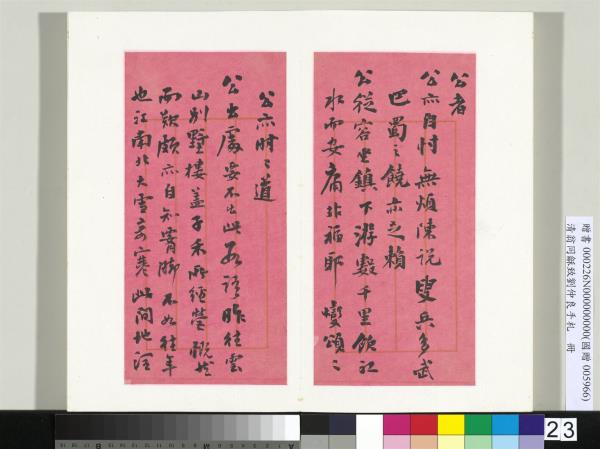 公者
公亦自忖無煩陳說叟兵多武
巴蜀之饒亦之賴
公從容坐鎮下游數千里飲江
水而安庸非福耶 頌々
公亦時々道
公出處要不出此數語昨往雲
山別墅樓蓋子禾所經營慨然
而歎顧亦自知腳不如往年
也江南北大雪奇寒此間地
贈書 000226N000000000(國贈 005966)
清翁同龢致劉仲良手札 冊
23